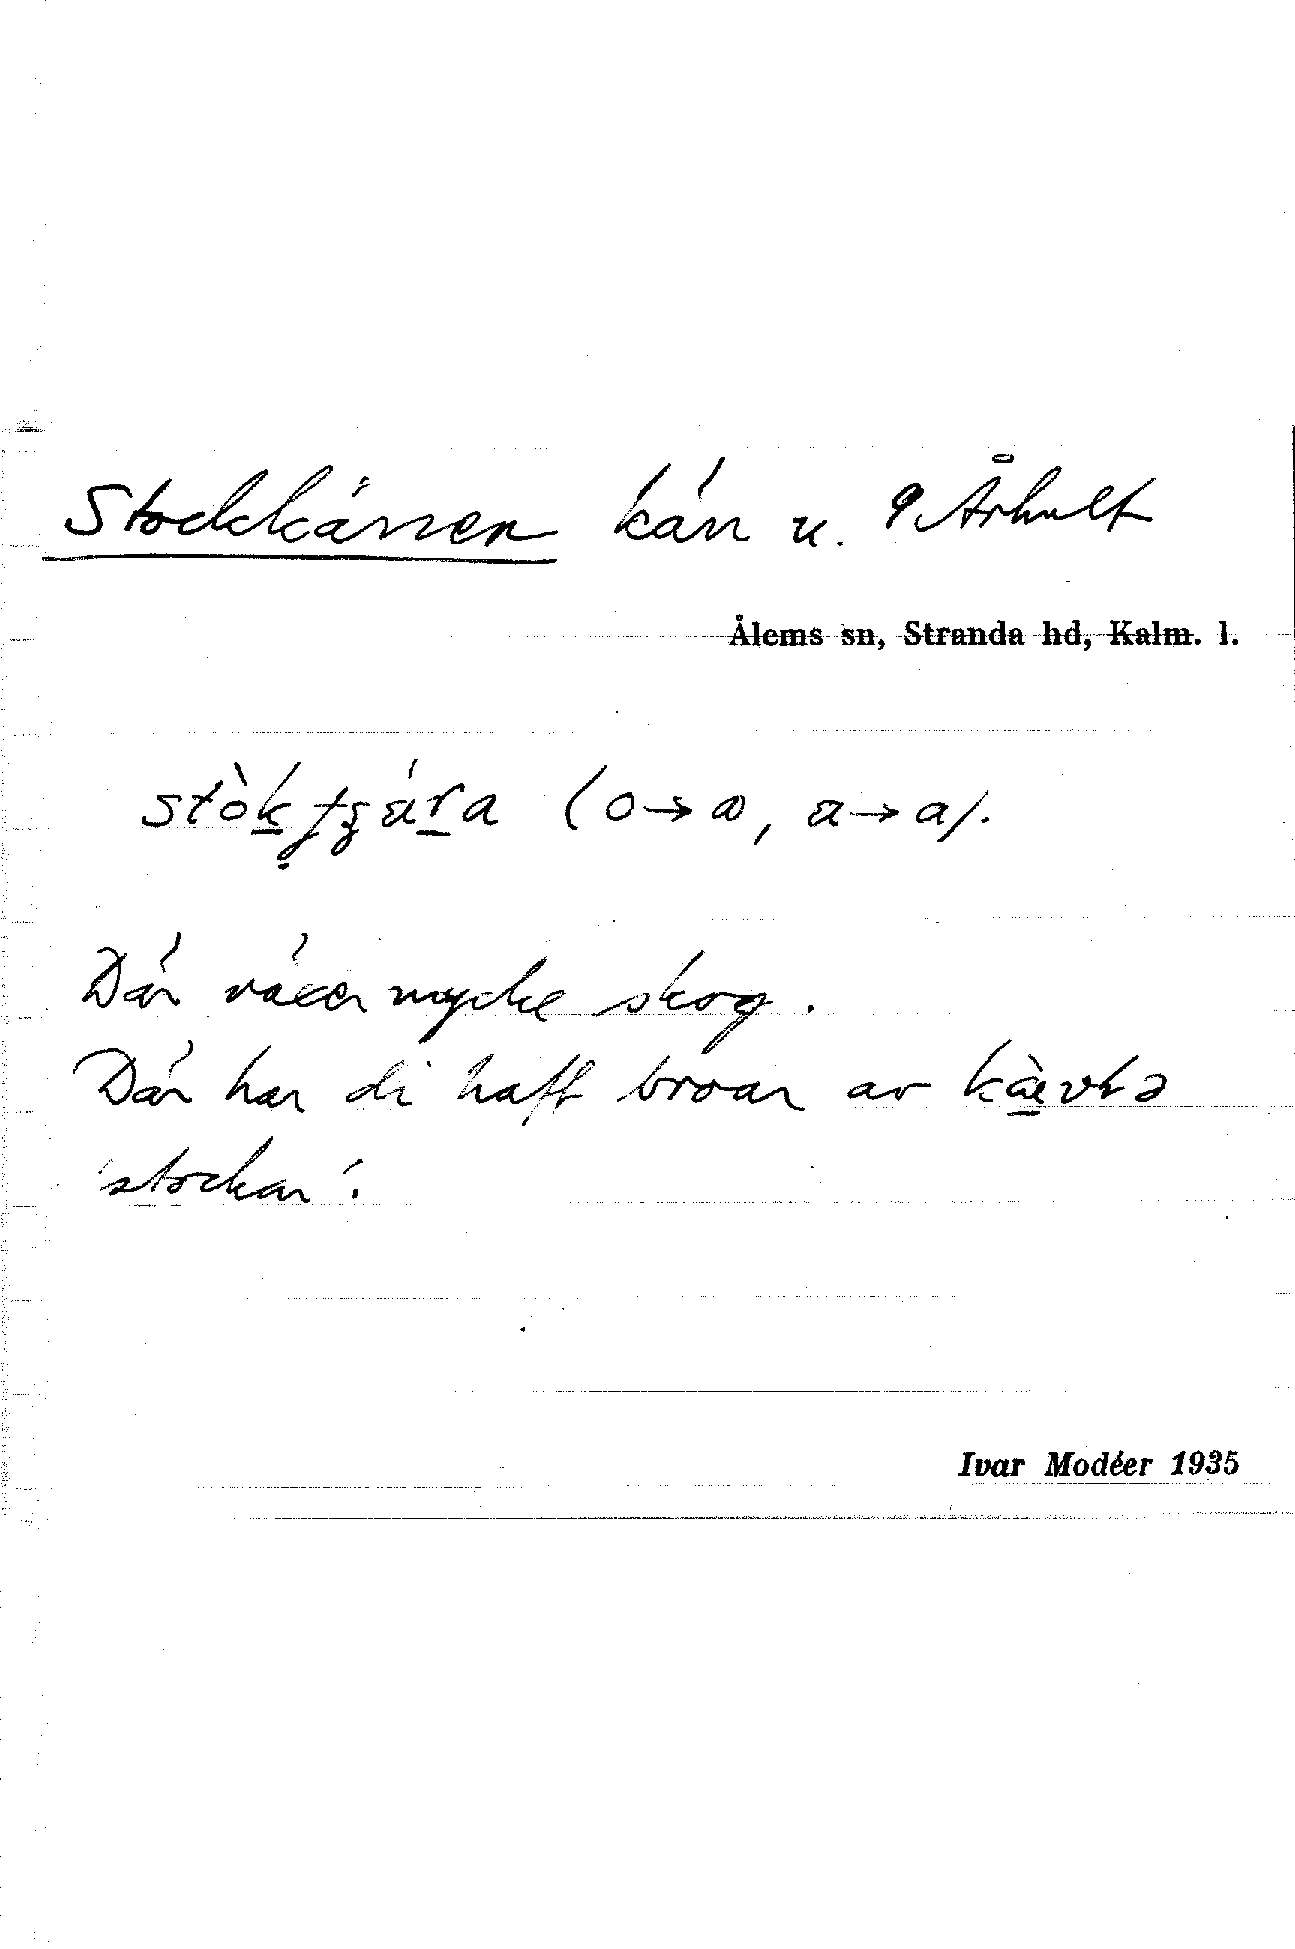 Stockkärren kärr u. 9 Århult
Ålems sn, Stranda hd, Kalm. l.
stòk̲ tʒär̲a (o→ɷ, a→a).
Där växer mycke skog.
Där har di haft broar av kæ̀vlə
'stockar'.
Ivar Modéer 1935